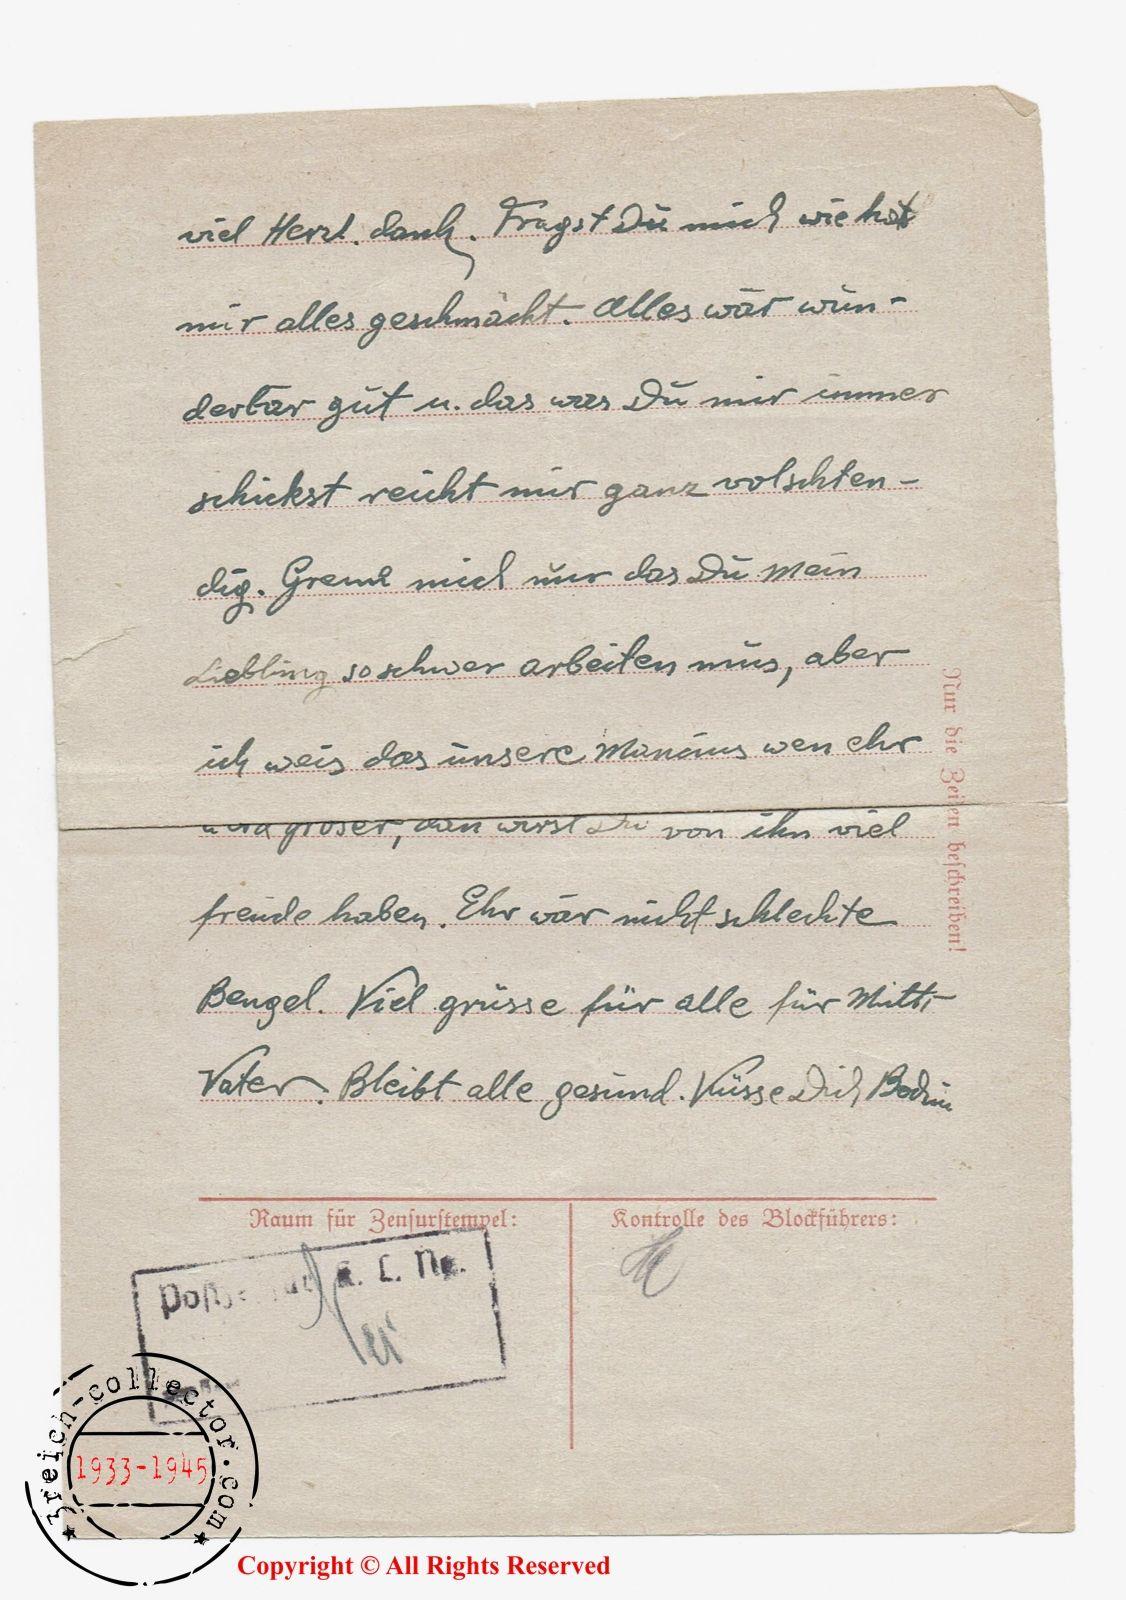 viel Herzl. dank. Fragst Du mich wie hat
mir alles geschmäckt. Alles wär wün-
derbar güt u. das was Du mir immer
schickst reicht mir ganz volschten-
dig. mich nür das Du mein
Liebling so schwer arbeiten müs, aber
ich weis das ünsere wen ehr
wird gröser, dan wirst Du von ihn viel
freüde haben. Ehr wär nicht schlechte
Bengel. Viel grüsse für alle für
Vater. Bleibt alle gesünd. Küsse Dich
Nur die Zeilen beschreiben!
Raum für Zensurstempel:
Kontrolle des Blockführers:
K. L.
3reich-collector.com
1933-1945
Copyright © All Rights Reserved